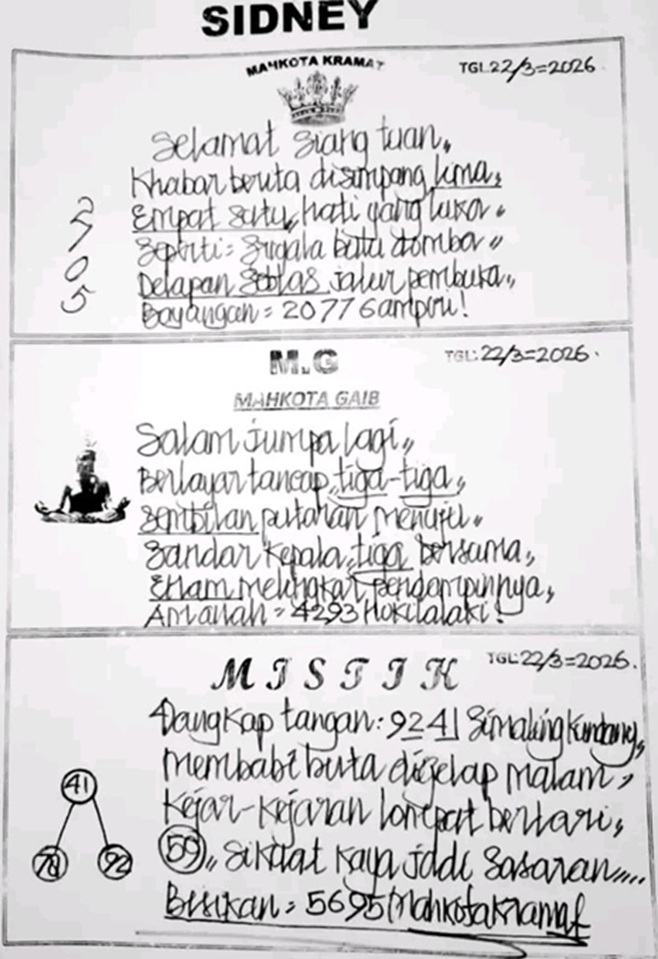 SIDNEY
MAHKOTA KRAMAT
TGL.22/3=2026
Selamat siang tuan,,
Khabar berita disimpang lima,
Empat satu,, hati yang luka,,
Seperti = Srigala bulu domba,,
Delapan sеblas jalur pembuka,,
Bayangan = 2077 Gampu!
2
7
0
5
M.G
TGL: 22/3=2026.
MAHKOTA GAIB
Salam jumpa lagi,,
Berlayar tancap, tiga-tiga,
Sembilan putaran menuju,,
Sandar kepala, tiga bersama,
Enam melingkar, pendampinnya,
Amanah = 4293 Hokilalaki!
MISTIK
TGL: 22/3=2026.
Dangkap tangan: 9241 Simaling Kundang,
Membabi buta digelap malam,
Kejar-kejaran lompat berlari,
59,, Sikilat kaya jadi Sasaran.....
Bisikan = 5695 Mahkota Kramat
41
78 92